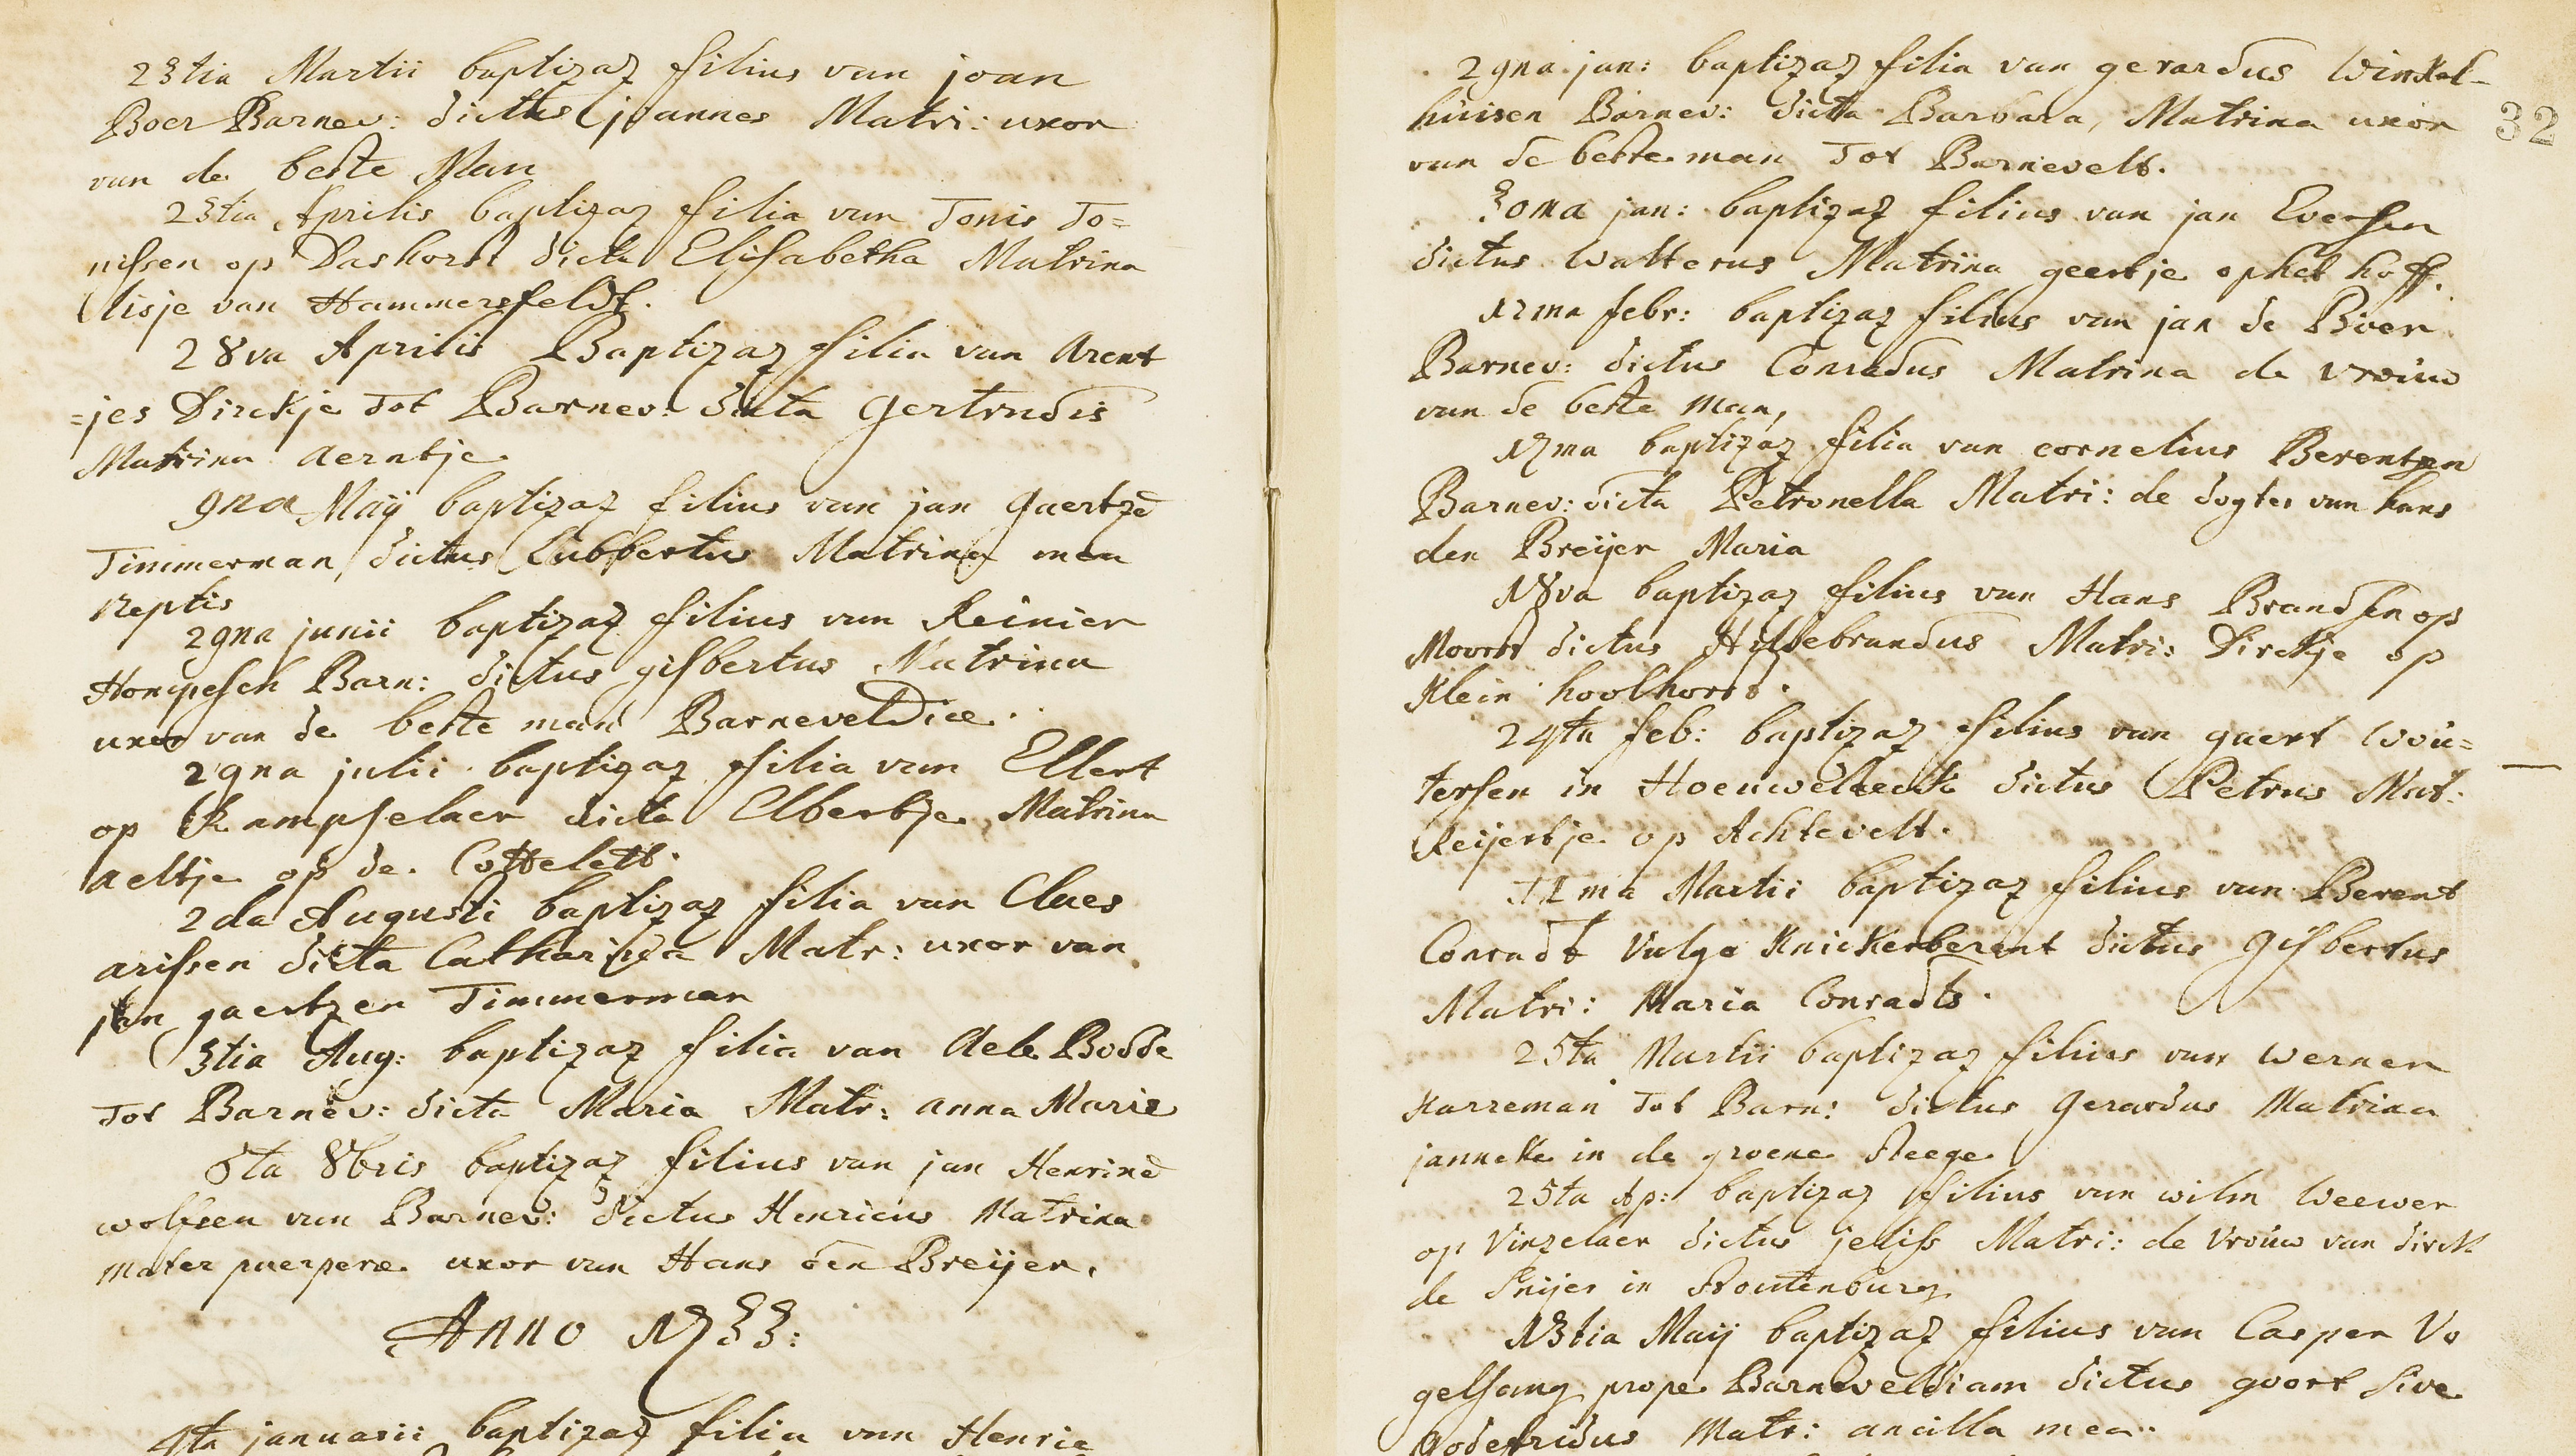 23tia Martii baptizaz filius van joan
Boer Barnev: dictus joannes Matri: uxor
van de beste Man
23tia Aprilis baptizaz filia van Tonis To=
nissen op Dashorst dicta Elisabetha Matrina
lisje van Hammersfeldt.
28va Aprilis Baptizaz filia van Arent
=jes Dirckje tot Barnev: dicta Gertrudis
Matrina Aerntje
9na Maij baptizaz filius van jan Gaertzē
Timmerman, dictus Lubbertus Matrina mea
Neptis
29na junii baptizaz filius van Reinier
Hompesch Barn: dictus gisbertus Matrina
uxor van de beste man Barneveldiæ.
29na julii baptizaz filia van Ellert
op Kampselaer dicta Elbertje, Matrina
aeltje op de
2da Augusti baptizaz filia van Claes
arissen dicta Catharina Matr: uxor van
jan gaertzen Timmerman
3tia Aug: baptizaz filia van Aele Bodde
tot Barnev: dicta Maria Matr: anna Marie
8bris baptizaz filius van jan Henrinē
wolfsen van Barnev: dictus Henricus Matrina
mater puerperæ uxor van Hans den Breijer.
Anno 1733:
4ta januarii baptizaz filia van Henric
29na jan: baptizaz filia van gerardus Winkel-
huisen Barnev: dicta Barbara, Matrina uxor
van de beste man tot Barnevelt.
30ma jan: baptizaz filius van jan Eversen
dictus Walterus Matrina geertje op het hoff.
12ma febr: baptizaz filius van jan de Boer
Barnev: dictus Conradus Matrina de vrouw
van de beste man,
17ma baptizaz filia van cornelius Berentzen
Barnev: dicta Petronella Matri: de dogter van hans
den Breijer Maria
18va baptizaz filius van Hans Brandsen op
Moorst dictus Hildebrandus Matri: Dirckje op
Klein hoolhorst.
24ta feb: baptizaz filius van gaert Wou=
tersen in Hoeuwelaeck dictus Petrus Mat:
Reijertje op Achtevelt.
11ma Martii baptizaz filius van Berent
Conradt Vulgo Knickerberent dictus Gisbertus
Matri: Maria Conradts.
25ta Martii baptizaz filius van Werner
Harreman tot Barn: dictus Gerardus Matrina
janneke in de groene steege
25ta Ap: baptizaz filius van wilm Weewer
op Vinzelaer dictus jeliss Matri: de Vrouw van dirck
de Snijer in Stoutenburg
13tia Maij baptizaz filius van Casper Vo
gelsang prope Barneveldiam dictus goort sive
Godefridus Matr: ancilla mea.
32